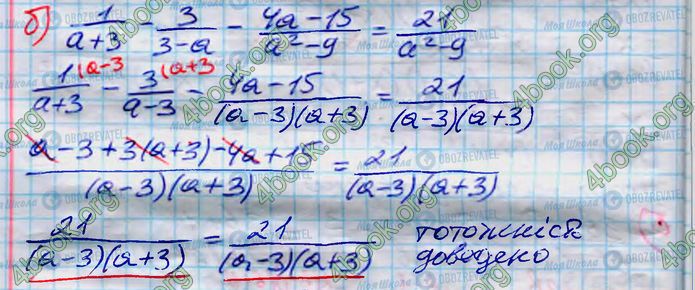 б) 1/(a+3) - 3/(3-a) - (4a-15)/(a²-9) = 21/(a²-9)
1/(a+3) (a-3 - 3/(a-3) (a+3 - (4a-15)/((a-3)(a+3)) = 21/((a-3)(a+3))
(a-3+3(a+3)-4a+15)/((a-3)(a+3)) = 21/((a-3)(a+3))
21/((a-3)(a+3)) = 21/((a-3)(a+3)) тотожність
доведено
4book.org
Моя Школа OBOZREVATEL